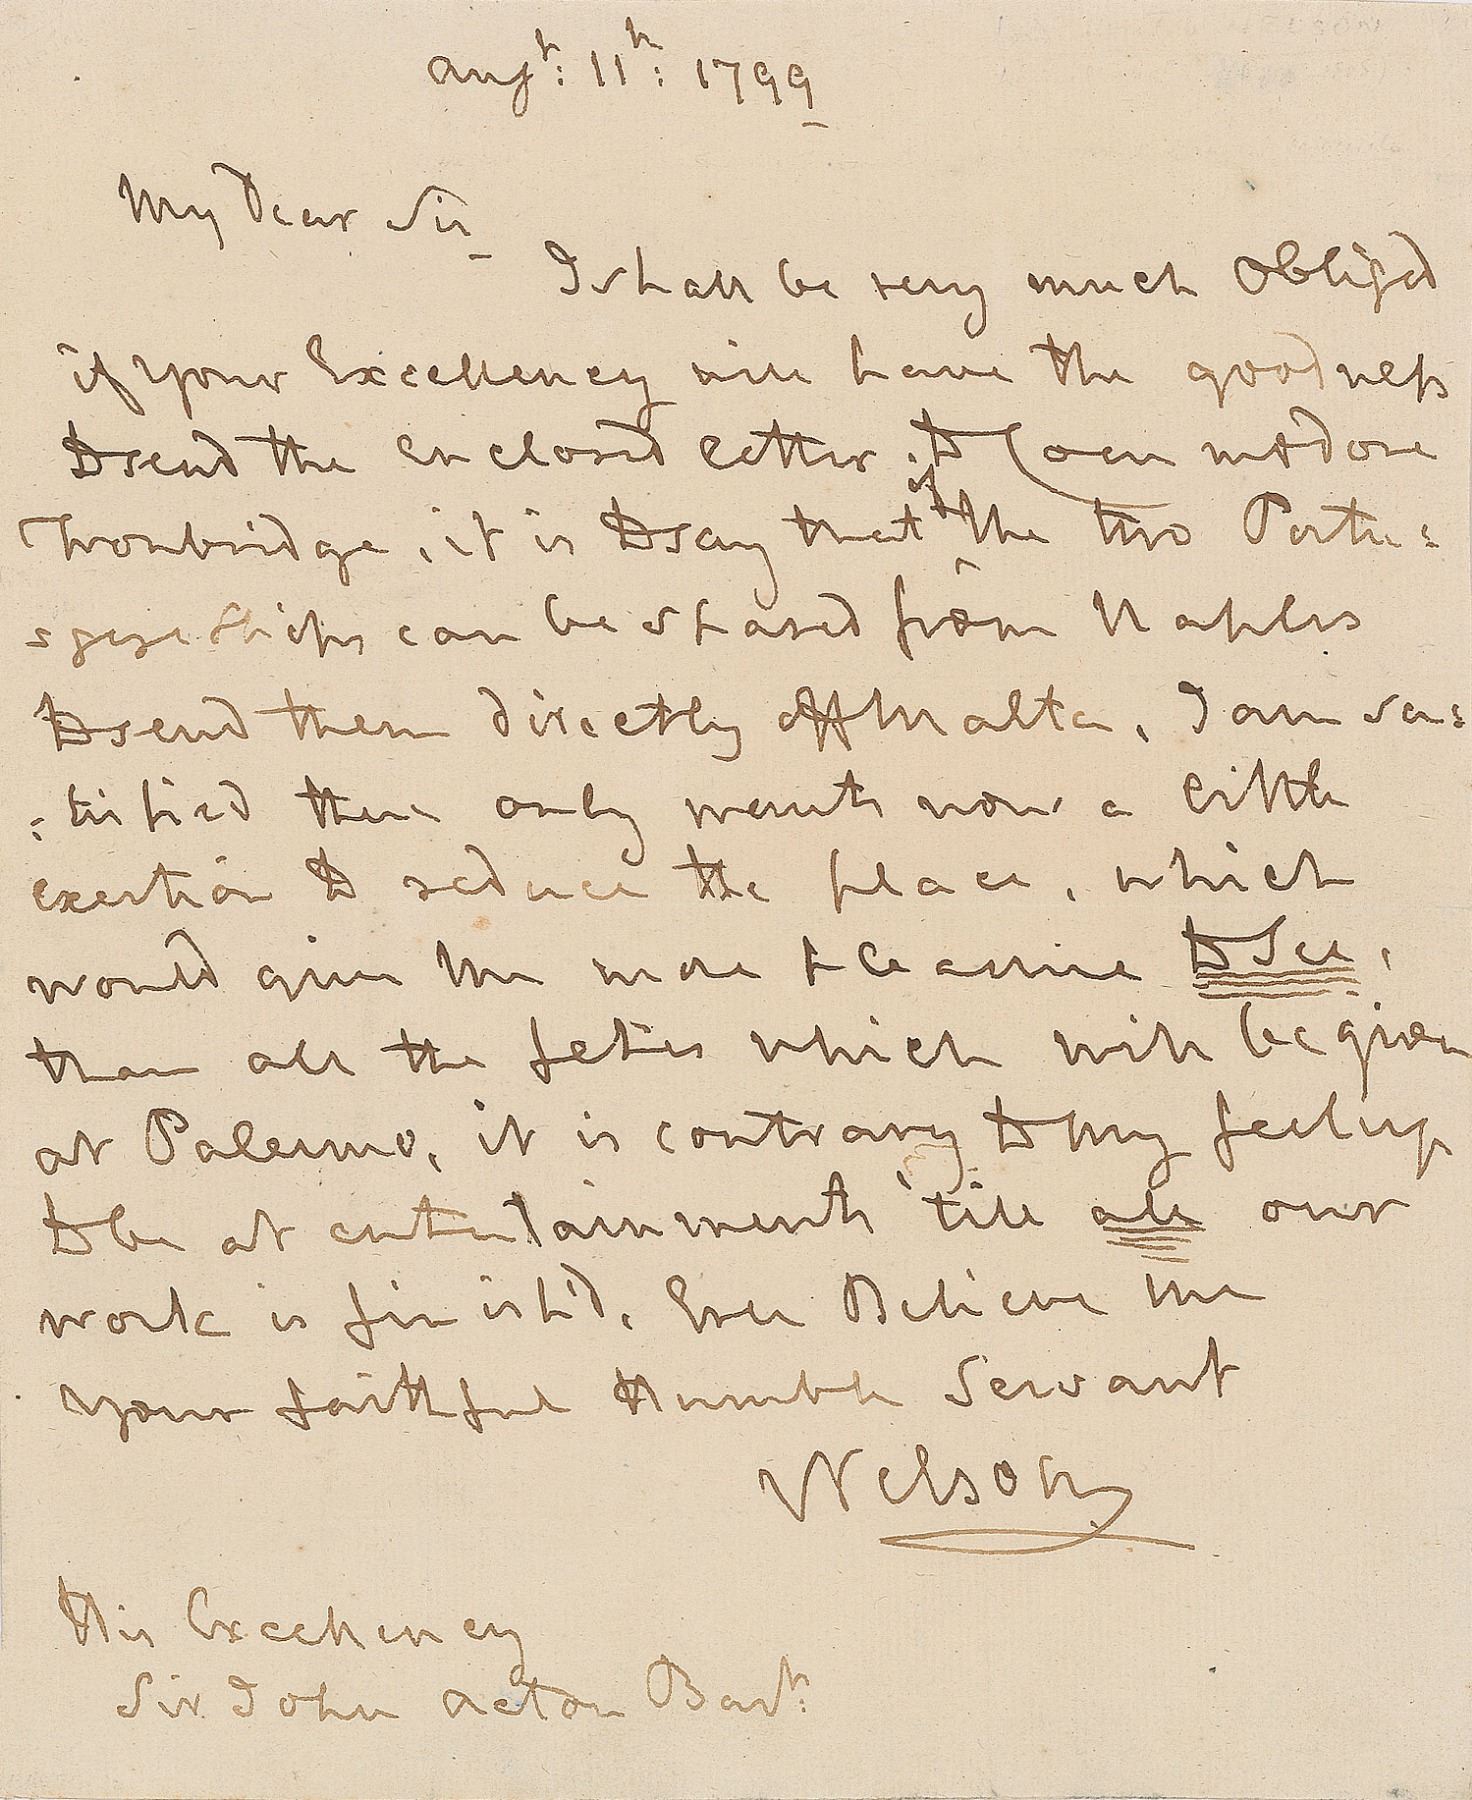 Augt: 11th: 1799
My Dear Sir
I shall be very much Obliged
if your Excellency will have the goodness
to send the enclosed letter to Commodore
Troubridge, it is to say that if the two Portu:
:gese Ships can be spared from Naples
to send them directly off Malta, I am sa:
:tisfied there only wants now a little
exertion to reduce the place, which
would give me more pleasure to See,
than all the fetes which will be given
at Palermo, it is contrary to my feelings
to be at entertainments 'till all our
work is finish'd, Ever Believe me
your faithful Humble Servant
Nelson
His Excellency
Sir John Acton Bart: